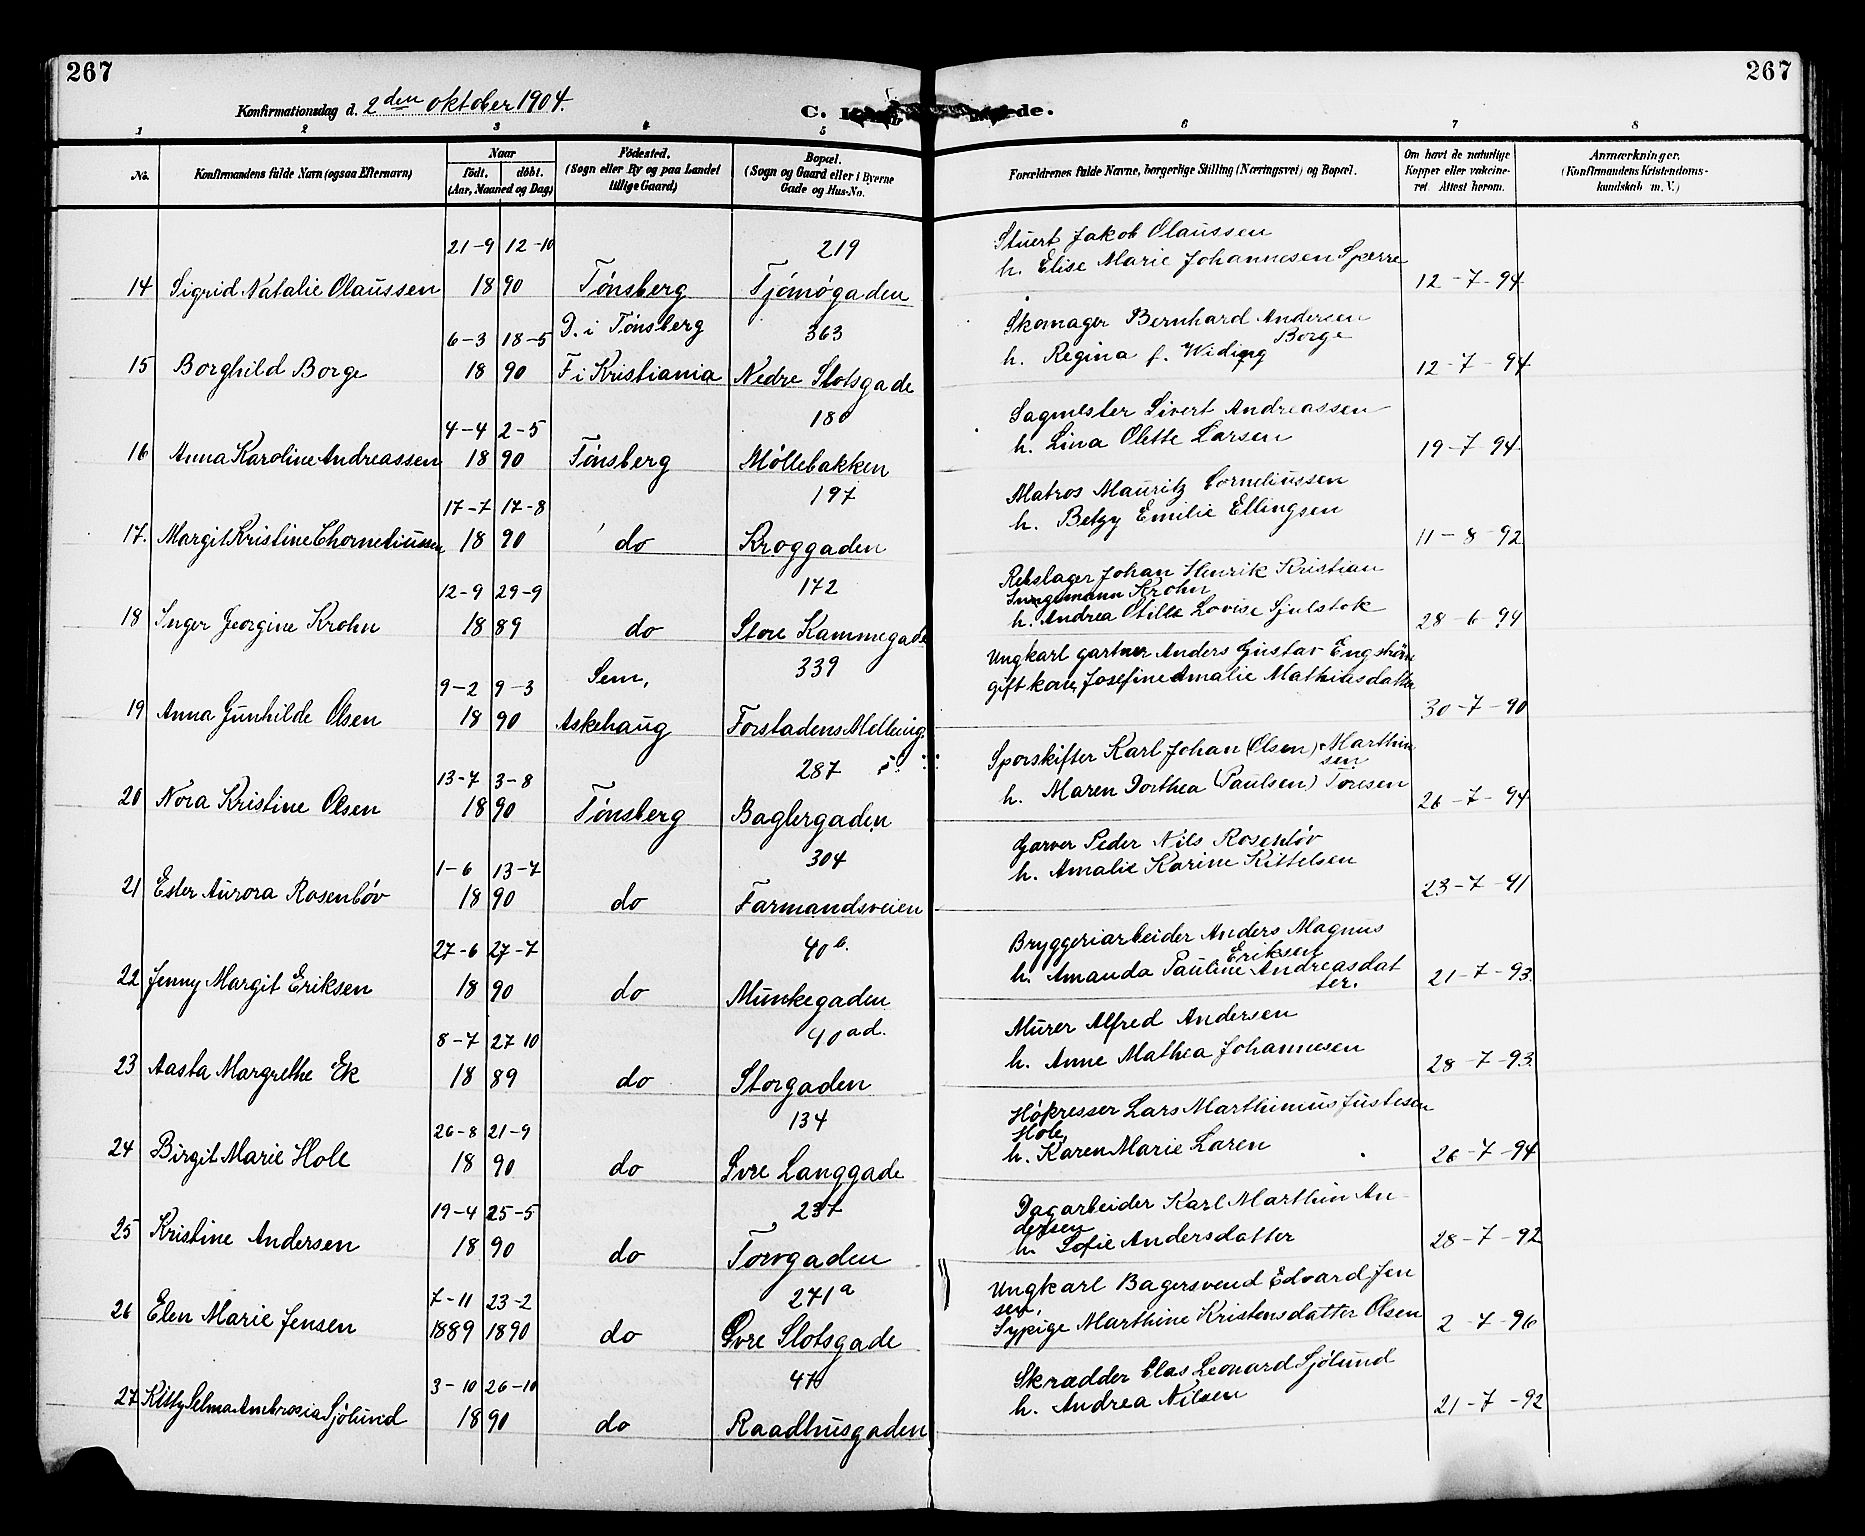 267
267
Konfirmationsdag d. 2den oktober 1904.
C.
de.
1 2 3 4 5 6 7 8
No.
Konfirmandens fulde Navn (ogsaa Efternavn)
Naar
født. døbt.
(Aar, Maaned og Dag)
Fødested.
(Sogn eller By og paa Landet
tillige Gaard)
Bopæl.
(Sogn og Gaard eller i Byerne
Gade og Hus-No.
Forældrenes fulde Navne, borgerlige Stilling (Næringsvei) og Bopæl.
Om havt de naturlige
Kopper eller vakcine-
ret. Attest herom.
Anmærkninger.
(Konfirmandens Kristendoms-
kundskab m. V.)
21-9 12-10 219 Stuert Jakob Olaussen
h. Elise Marie Johannesen Sperre
14 Sigrid Natalie Olaussen 18 90 Tønsberg Tjømøgaden 12-7-94
6-3 18-5 D. i Tønsberg 363 Skomager Bernhard Andersen
Borge
h. Regina f. Widing
15 Borghild Borge 18 90 F i Kristiania Nedre Slotsgade 12-7-94
4-4 2-5 180 Sagmester Sivert Andreassen
h. Lina Olette Larsen
16 Anna Karoline Andreassen 18 90 Tønsberg Møllebakken 19-7 94
17-7 17-8 197 Matros Mauritz Corneliussen
h. Betzy Emilie Ellingsen
17. Margit Kristine Chorneliussen 18 90 do Kroggaden 11-8-92
12-9 29-9 172 Rebslager Johan Henrik Kristian
Krohn
h. Andrea Lovise
18 Inger Georgine Krohn 18 89 do Store Kammegade 28-6 94
9-2 9-3 Sem, 339 Ungkarl gartner Anders Gustav Engström
gift kone Josefine Amalie Mathiasdatter
19 Anna Gunhilde Olsen 18 90 Askehaug Forstadens 30-7-90
13-7 3-8 287 Sporskifter Karl Johan (Olsen) Marthin
sen
h. Maren Dorthea (Paulsen) Toresen
20 Nora Kristine Olsen 18 90 Tønsberg Baglergaden 26-7-94
1-6 13-7 304 Garver Peder Nils Rosenløv
h. Amalie Karine Kittelsen
21 Ester Aurora Rosenløv 18 90 do Farmandsveien 23-7-91
27-6 27-7 40 b. Bryggeriarbeider Anders Magnus
Eriksen
h. Amanda Pauline Andreasdat
ter.
22 Jenny Margit Eriksen 18 90 do Munkegaden 21-7-93.
8-7 27 10 40 ad. Murer Alfred Andersen
h. Anne Mathea Johannesen
23 Aasta Margrethe Ek 18 89 do Storgaden 28-7-93.
26-8 21-9 134 Høkresser Lars Marthinius Justesen
Hole
h. Karen Marie Laren
24 Birgit Marie Hole 18 90 do Svre Langgade 26-7-94
19-4 25-5 237 Dagarbeider Karl Marthin An-
dersen
h. Sofie Andersdatter
25 Kristine Andersen 18 90 do Torvgaden 28-7-92
7-11 23-2 271 a Ungkarl Bagersvend Edvard Jen
sen,
Sypige Marthine Kristensdatter Olsen
26 Elen Marie Jensen 1889 1890 do Øvre Slotsgade 2-7-96
3-10 26-10 Skrædder Clas Leonard Sjølund
h. Andrea Nilsen
27 Kitty Selma Ambrosia Sjølund 18 90 do Raadhusgaden 21-7-92